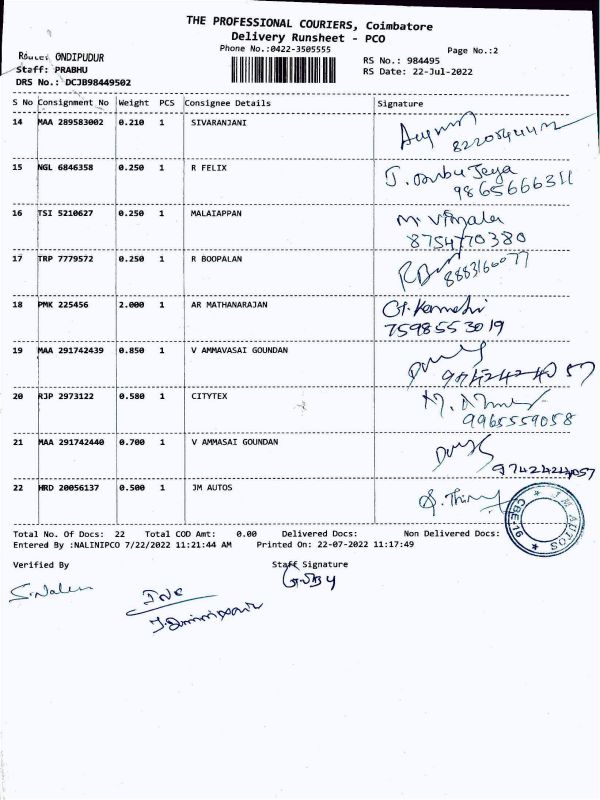 THE PROFESSIONAL COURIERS, Coimbatore
Delivery Runsheet - PCO
Phone No.:0422-3505555
Page No.:2
Route: ONDIPUDUR
Staff: PRABHU
DRS No.: DCJB98449502
RS No.: 984495
RS Date: 22-Jul-2022
S No Consignment No Weight PCS Consignee Details Signature
14 MAA 289583002 0.210 1 SIVARANJANI
15 NGL 6846358 0.250 1 R FELIX
9865666311
16 TSI 5210627 0.250 1 MALAIAPPAN
8754770380
17 TRP 7779572 0.250 1 R BOOPALAN
8883160077
18 PMK 225456 2.000 1 AR MATHANARAJAN
7598553019
19 MAA 291742439 0.850 1 V AMMAVASAI GOUNDAN
20 RJP 2973122 0.580 1 CITYTEX
9965559058
21 MAA 291742440 0.700 1 V AMMASAI GOUNDAN
22 HRD 20056137 0.500 1 JM AUTOS
JM AUTOS
Total No. Of Docs: 22 Total COD Amt: 0.00 Delivered Docs: Non Delivered Docs:
Entered By :NALINIPCO 7/22/2022 11:21:44 AM Printed On: 22-07-2022 11:17:49
Verified By Staff Signature